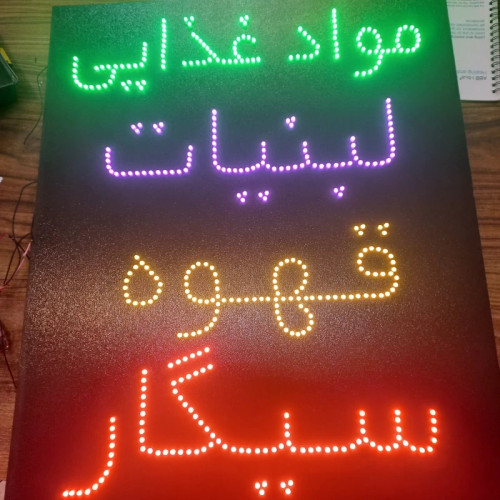 مواد غذایی
لبنیات
قهوه
سیگار